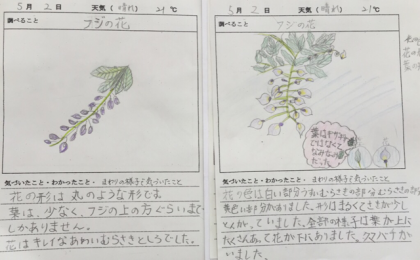 5月2日 天気(晴れ) 21℃
調べること フジの花
気づいたこと・わかったこと・まわりの様子で気づいたこと
花の形は丸のような形です。
葉は、少なく、フジの上の方ぐらいまで
しかありません。
花はキレイなあわいむらさきとしろでした。
5月2日 天気(晴れ) 21℃
調べること フジの花
葉はギザギザ
ではなくて
なみなみ
だった
気づいたこと・わかったこと・まわりの様子で気づいたこと
花の色は白い部分うすいむらさきの部分むらさきの
黄色に部分がありました。
ていました。全部の様子は葉が上に
たくさんあって花が下にありました。クマバチが
いました。